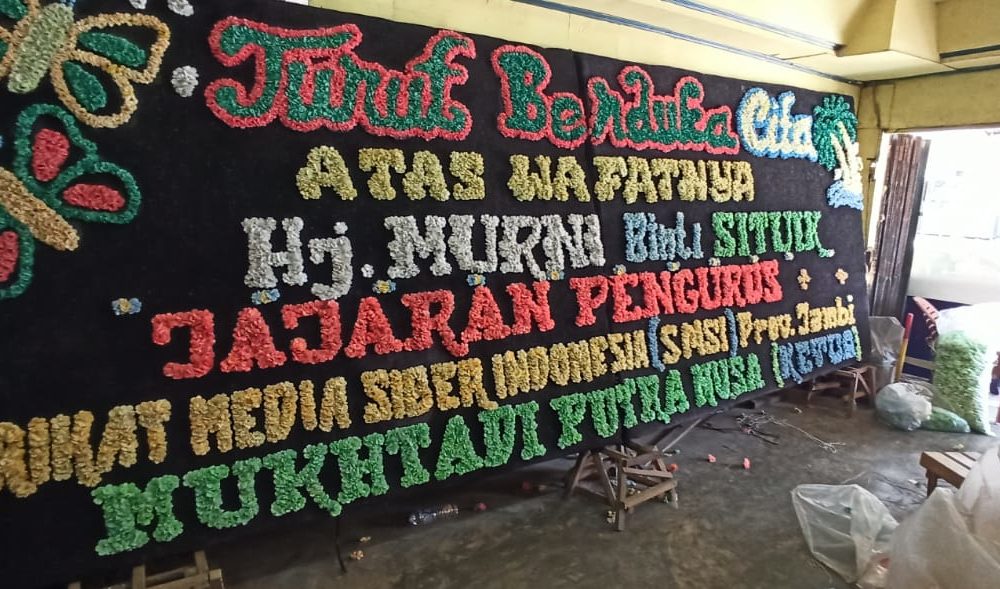 Turut Berduka Cita
ATAS WAFATNYA
Hj. MURNI Binti SITUIK
JAJARAN PENGURUS
RIKAT MEDIA SIBER INDONESIA (SMSI) Prov. Jambi
MUKHTADI PUTRA NUSA (KETUA)